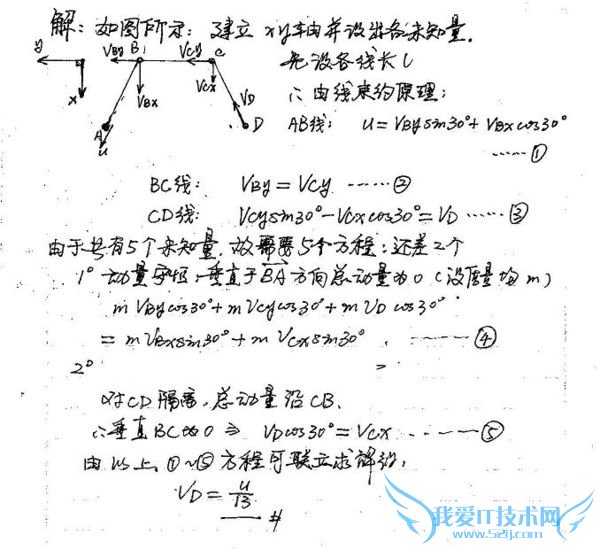 解: 如图所示: 建立 xy轴并设出各未知量.
y x VBy B VCy C VBx VCx VD A u D
先设各线长 l
∴ 由线束约原理:
AB线: u = VBy sin30° + VBx cos30°
······①
BC线: VBy = VCy ······②
CD线: VCy sin30° − VCx cos30° = VD ······③
由于共有5个未知量, 故需要5个方程: 还差2个
1° 动量守恒: 垂直于BA方向总动量为0 (设质量均m)
m VBy cos30° + m VCy cos30° + m VD cos30°
= m VBx sin30° + m VCx sin30° . ······④
2° =
对CD隔离, 总动量沿CB.
∴ 垂直BC为0 ⇒ VD cos30° = VCx ······⑤
由以上 ①~⑤ 方程可联立求解得:
VD = u/13
#
我爱IT技术网
www.52ij.com